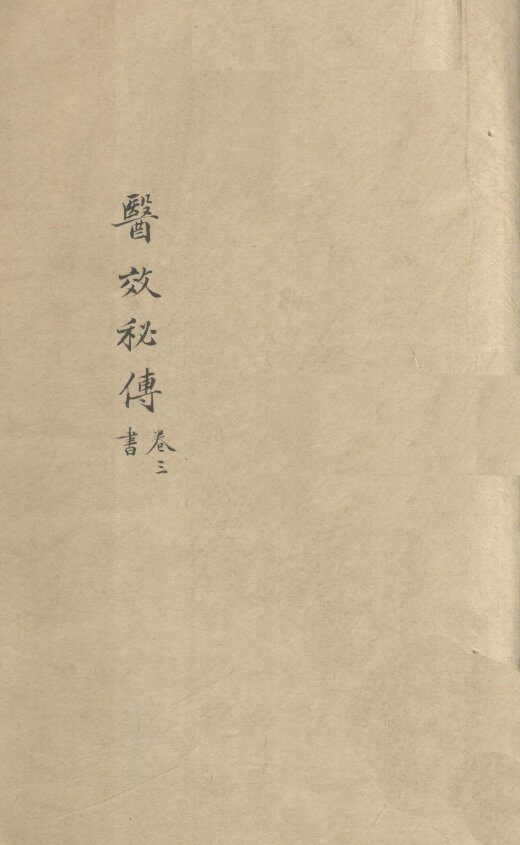 醫效秘傳
卷三
書